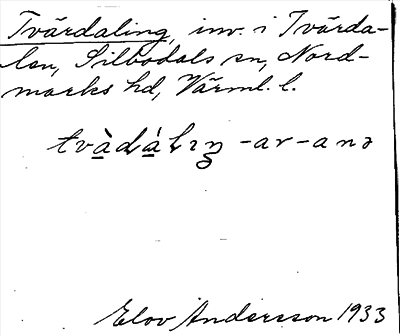 Tvärdaling, inv. i Tvärda-
len, Silbodals sn, Nord-
marks hd, Värml. l.
tvàdálıŋ -ar -anə
Elov Andersson 1933